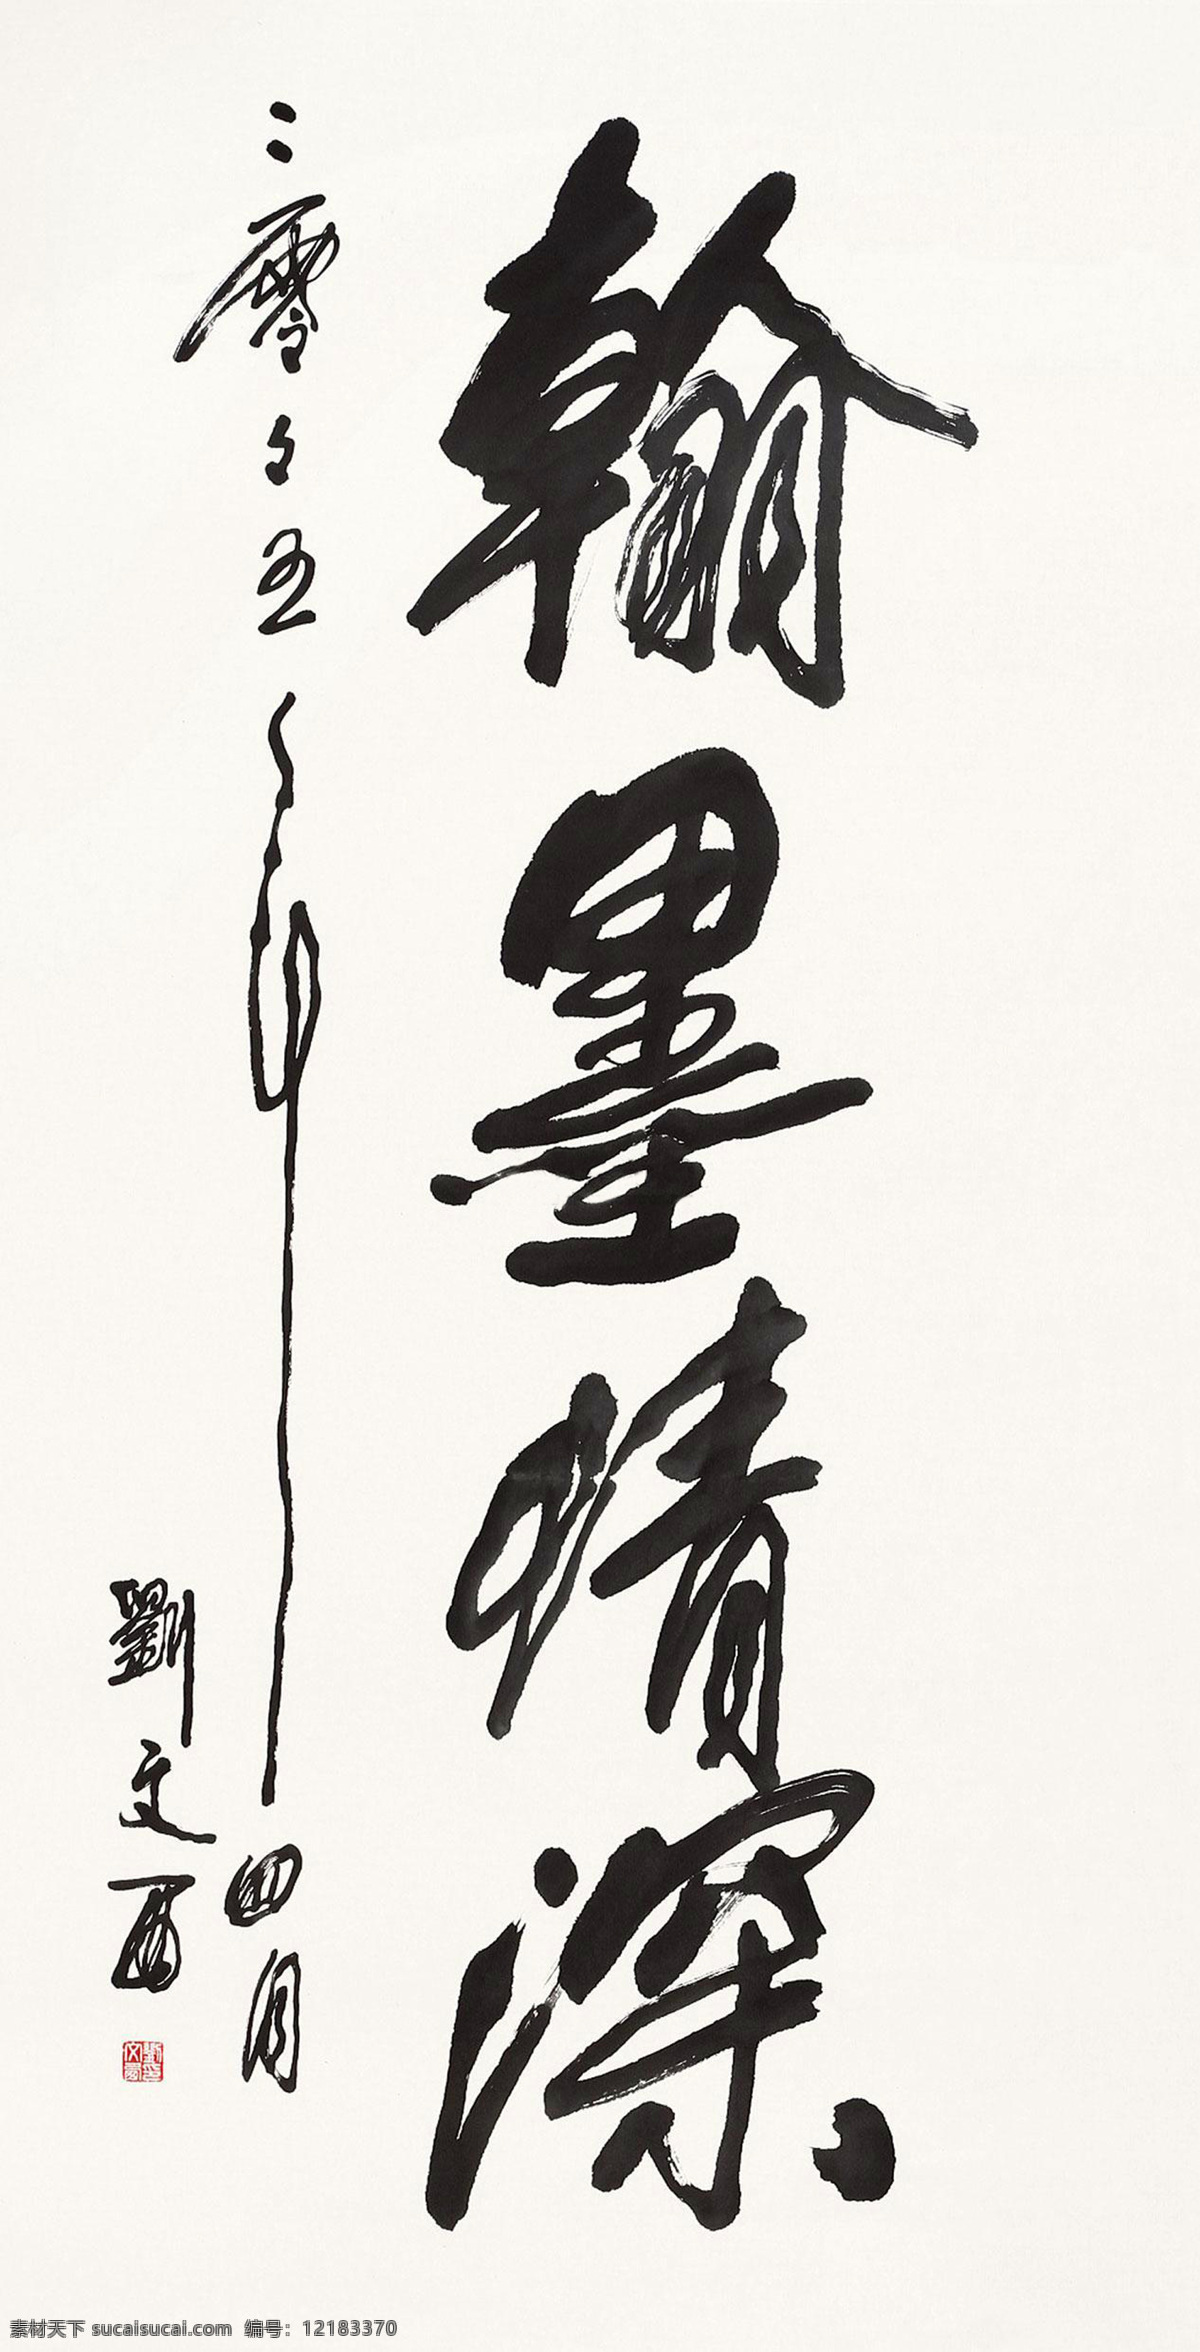 翰墨情深
二零〇〇五年四月
劉文西
劉文西
素材天下 sucaisucai.com 编号：12183370